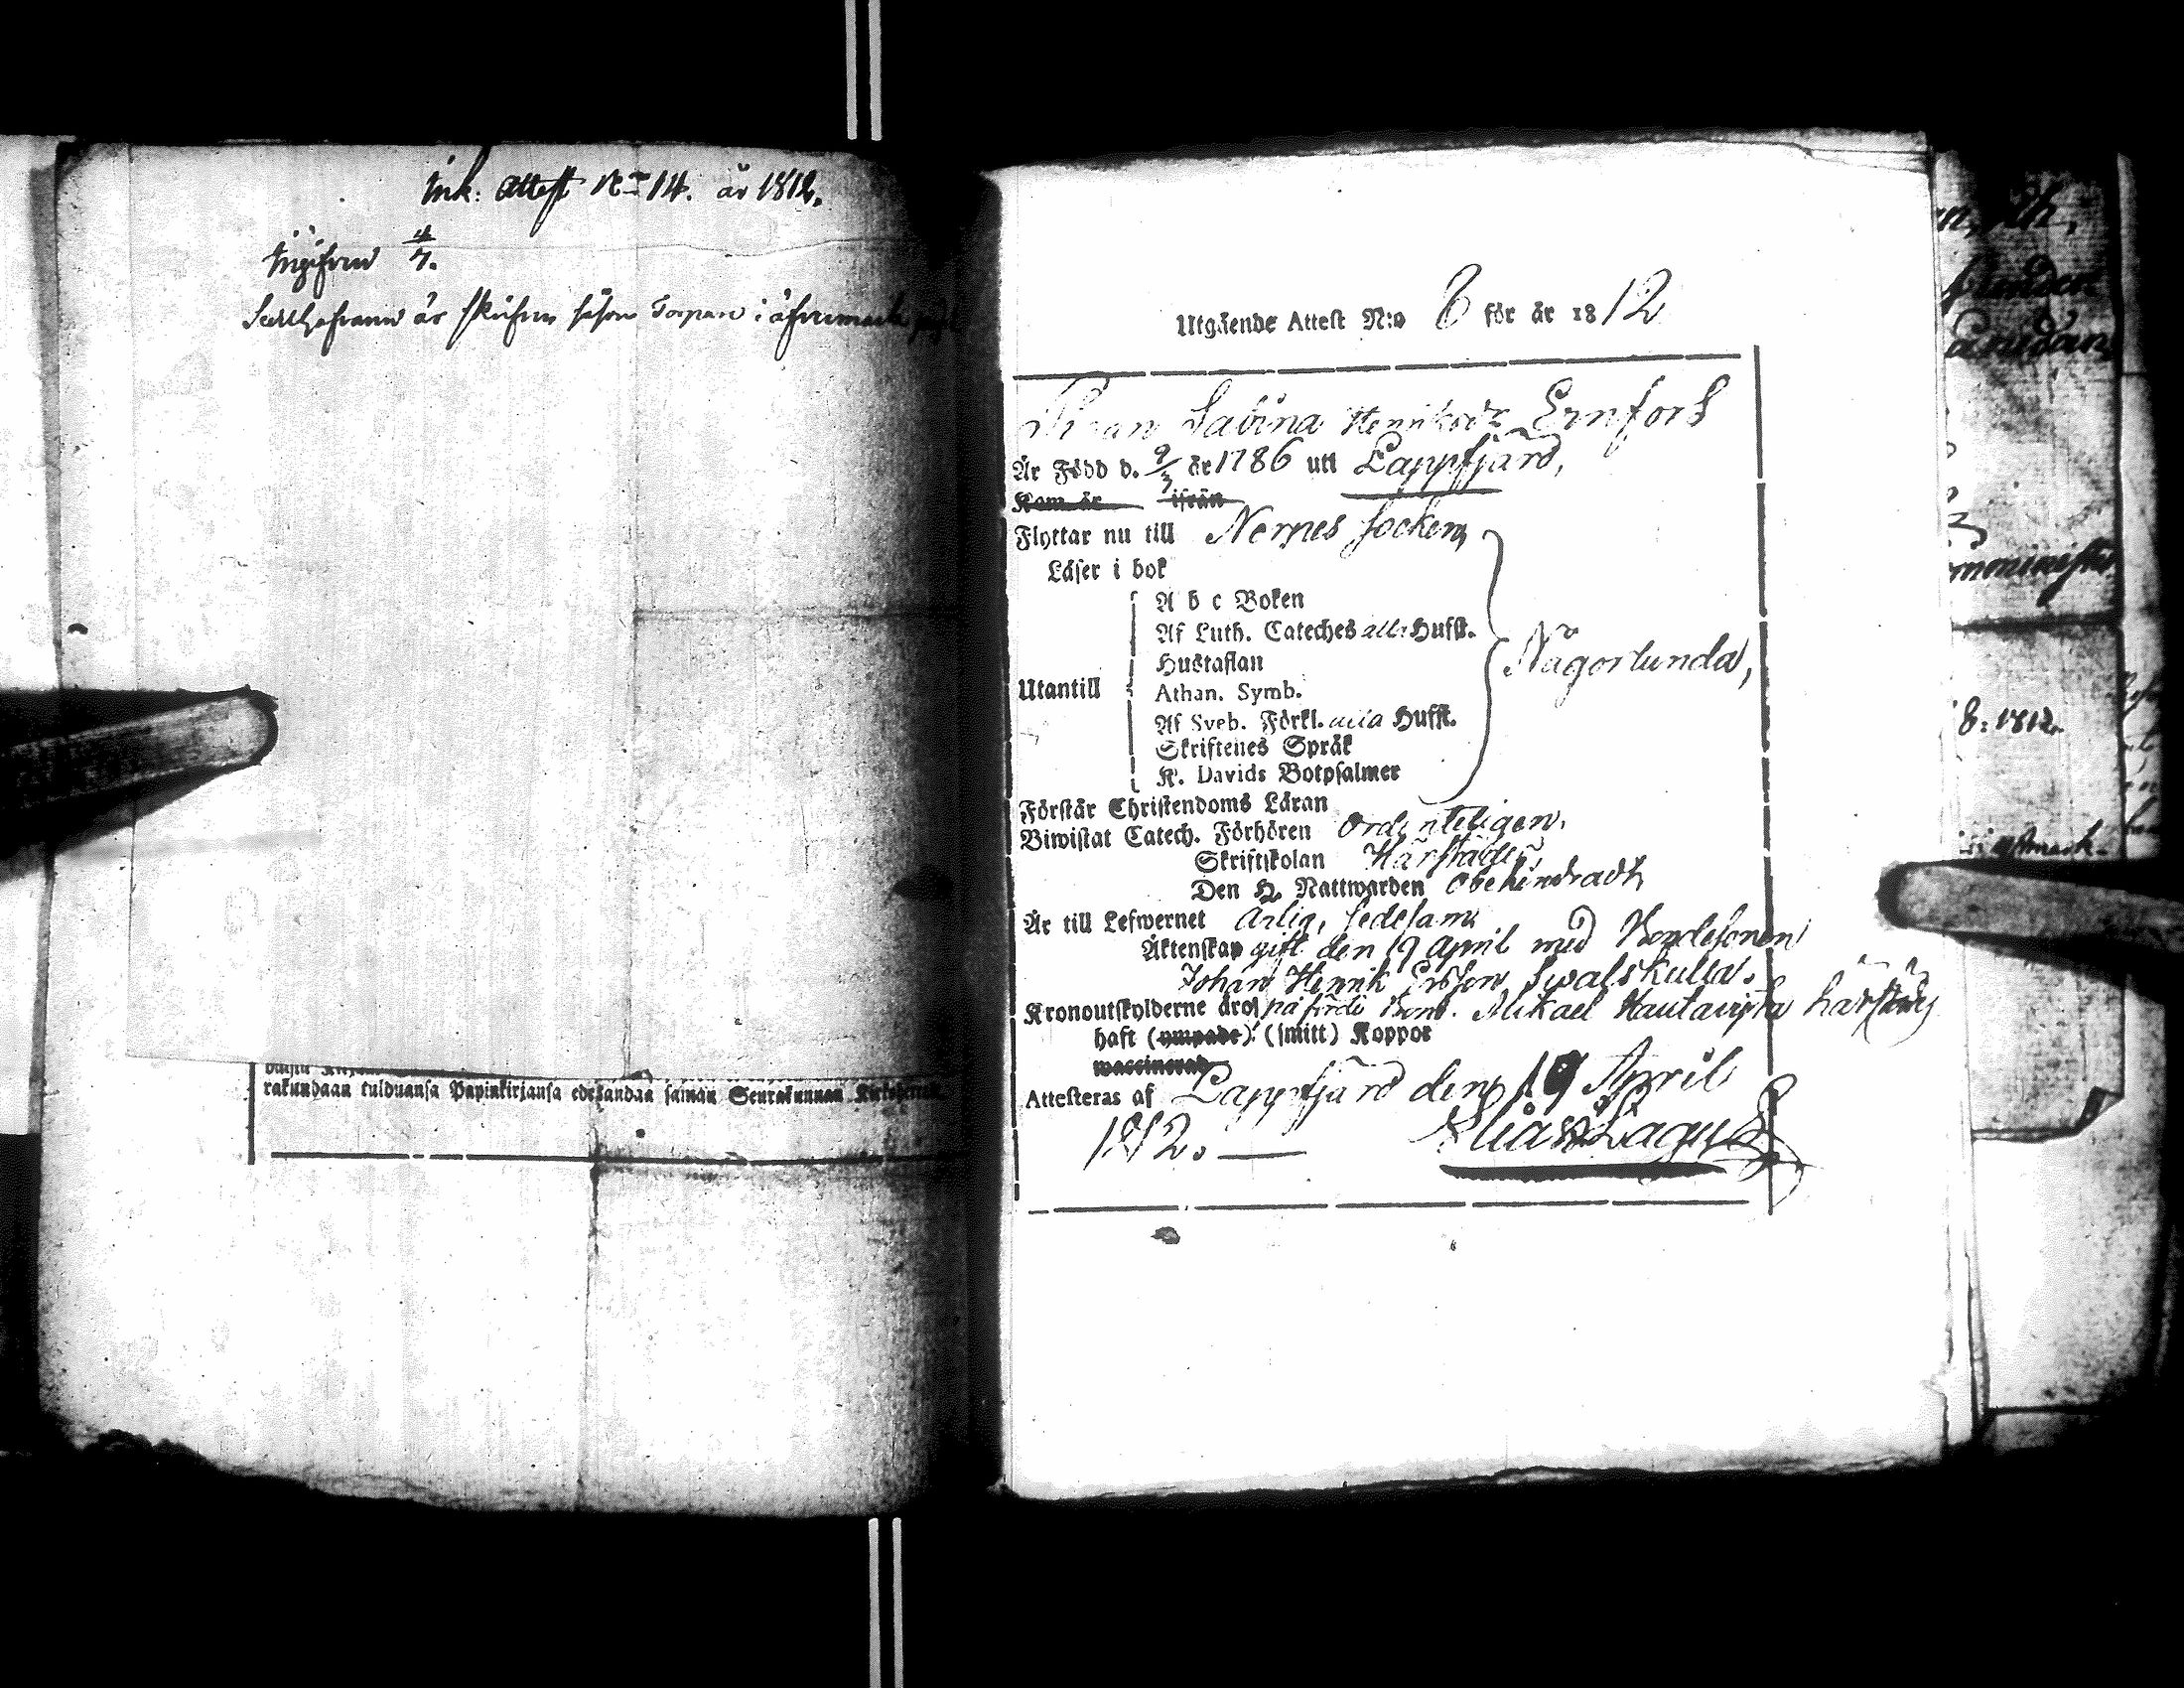 ink: Attest No 14. år 1812.
ingifven 4/7.
är skrifven såsom Torpare i
rakundaan tulduansa Papinkirjansa edeskandaa saman Seurakunnan
Utgående Attest N:o 8 för år 1812
Pigan Sabina Henriksdr Ernfors
Är Född d. 9/3 år 1786 uti Lappfjärd,
Kom år ifrån
Flyttar nu till Nerpes socken,
Läser i bok
A b c Boken
Af Luth. Cateches alla Hufst.
Hustaflan
Utantill
Någorlunda,
Athan. Symb.
Af Sveb. Förkl. alla Hufst.
Skriftenes Språk
K. Davids Botpsalmer
Förstår Christendoms Läran
Biwistat Catech. Förhören Ordenteligen,
Skriftskolan Härstädes,
Den H. Nattwarden Obehindradt,
Är till Lefwernet Ärlig, sedesam
Äktenskap gift den 19 April med Bondesonen
Johan Henrik Ersson Swalskulla.
Kronoutskylderne äro påförde Bond. Mikael Hautaviita härstädes
haft (ympade) (smitt) Koppor
waccinerad
Attesteras af Lappfjärd den 19 April
1812. Elias Lagus
8: 1812.